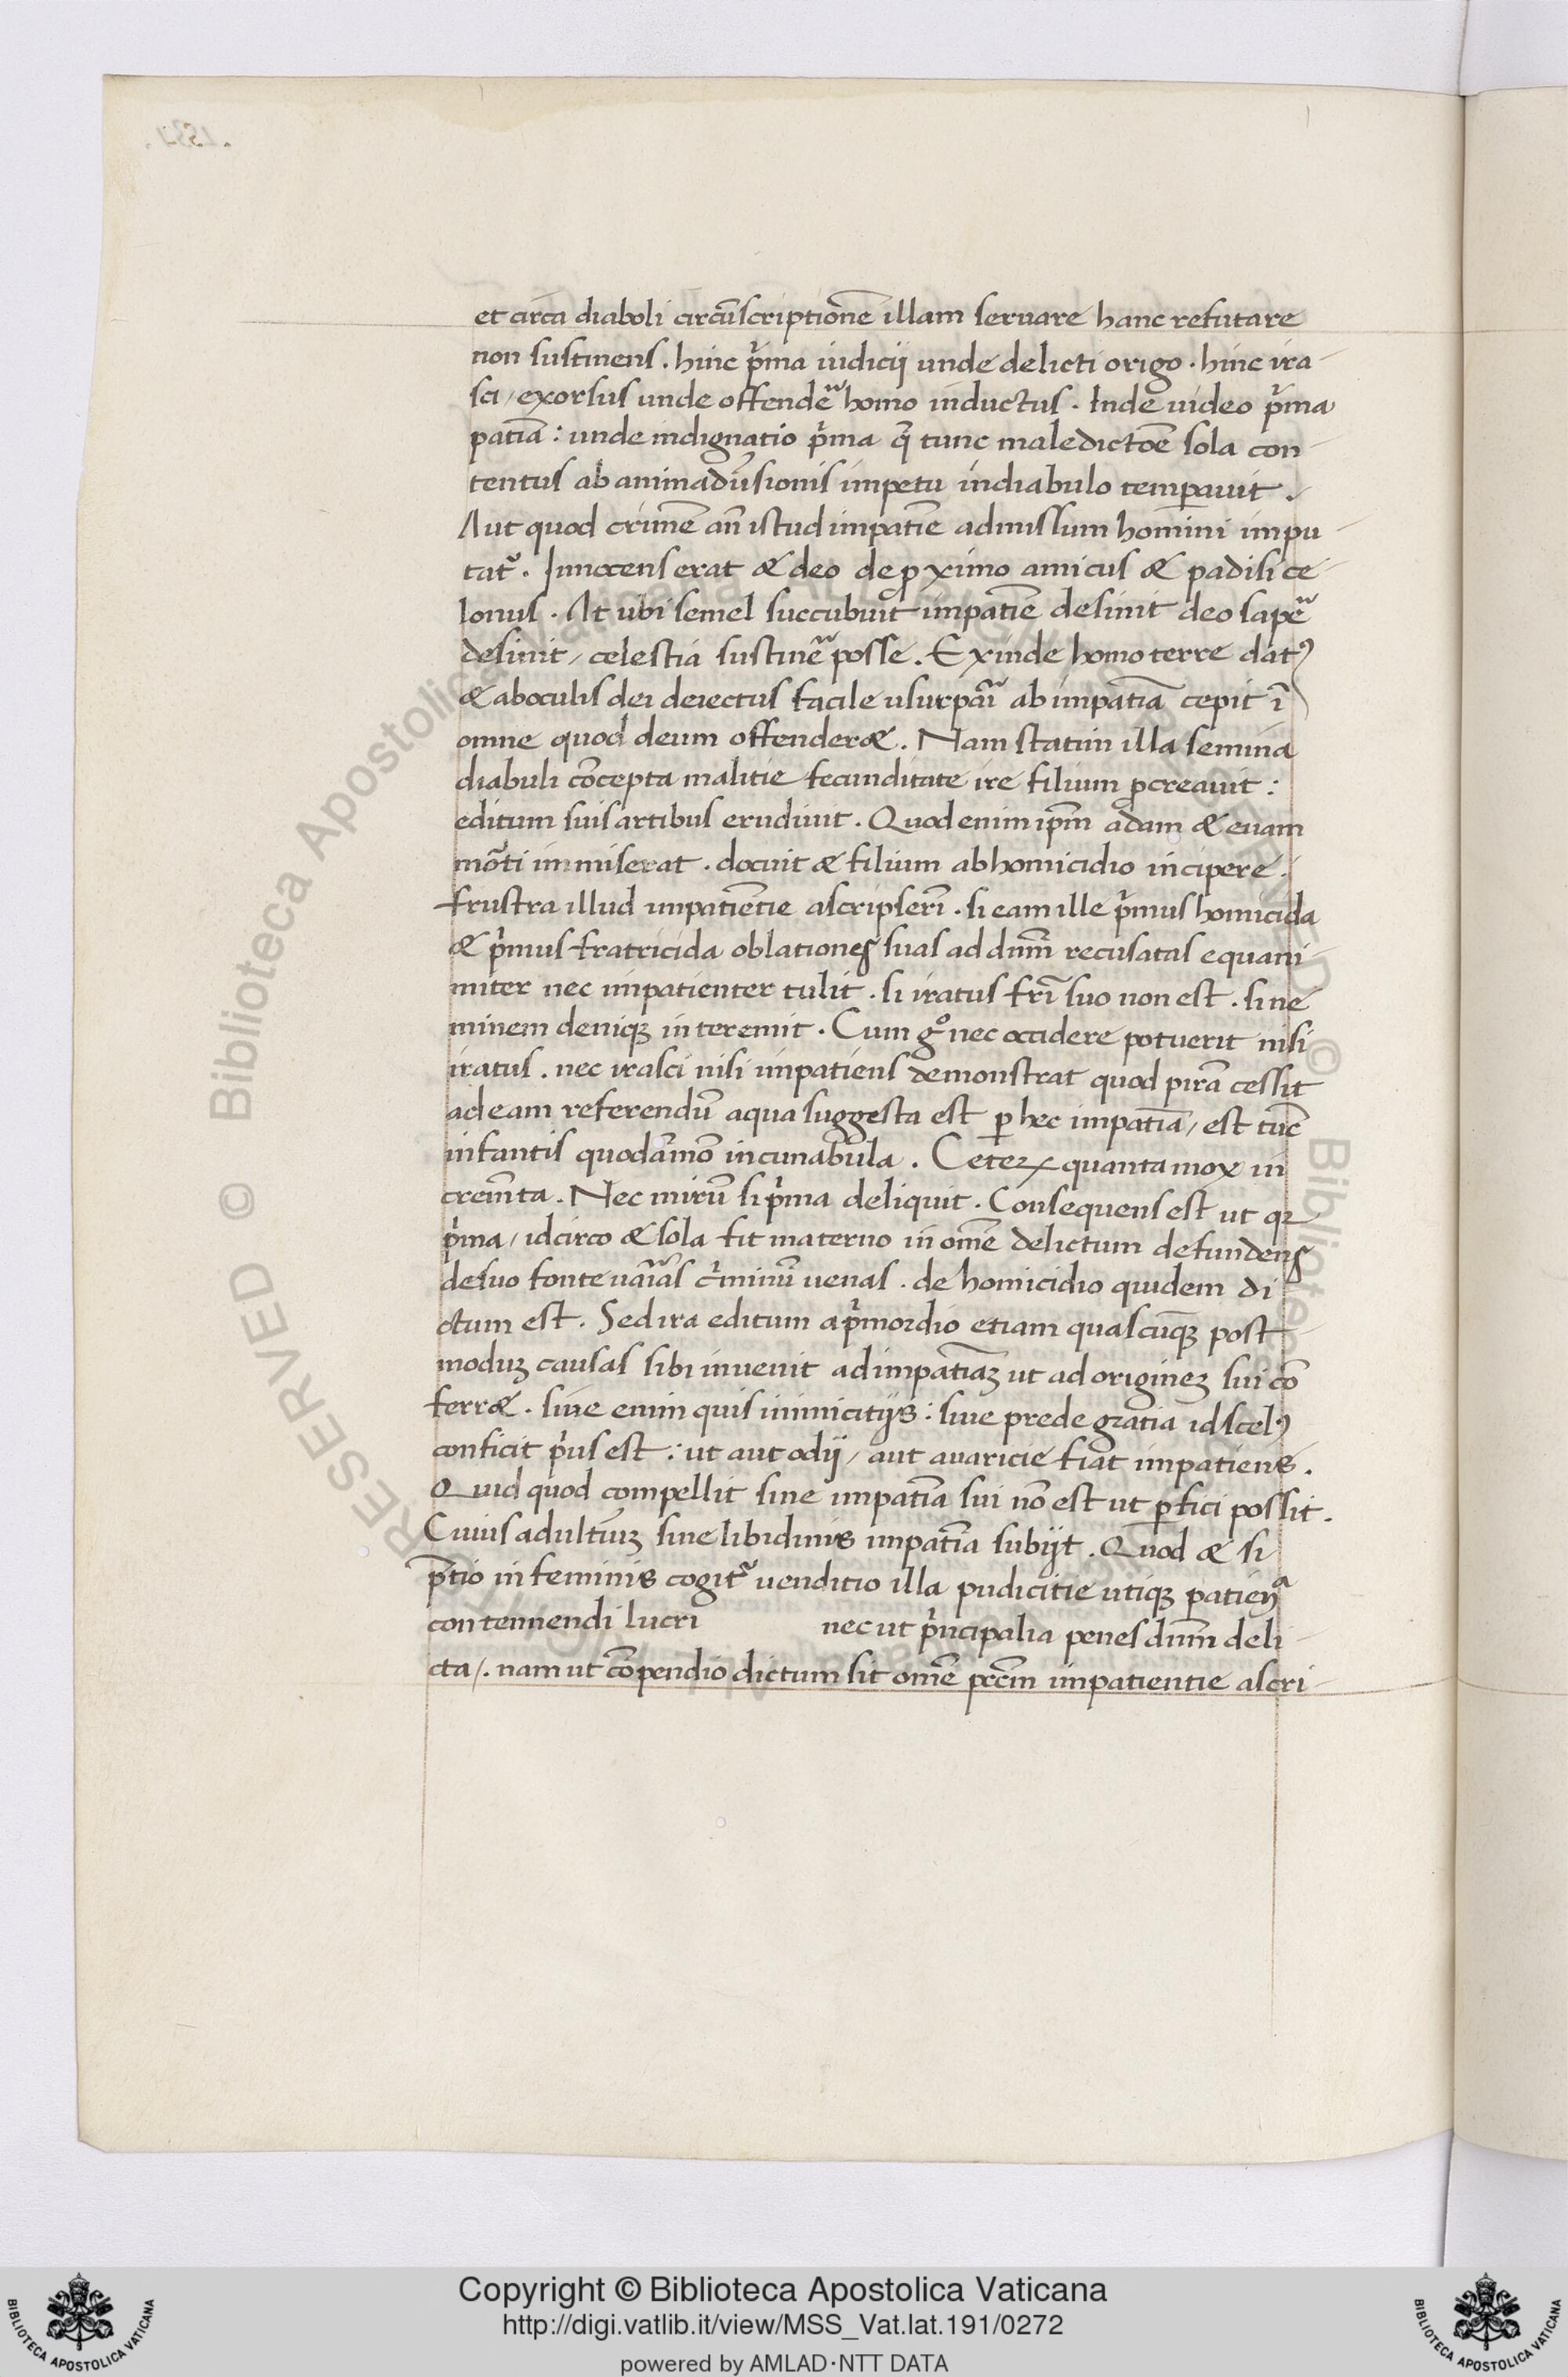 et circa diaboli circūscriptionē illam seruare hanc refutare
non sustinens . hinc p̄ma iudicij unde delicti origo . hinc ira-
sci / exorsus unde offendeͬ homo inductus . Inde uideo p̄ma
patīa : unde indignatio p̄ma q̄ tunc maledictōe sola con-
tentus ab animadūsionis impetu in diabulo temꝑauit .
Aut quod crimē añ istud impatīe admissum homini impu-
tat᷑ . Innocens erat & deo de ꝓximo amicus & padisi ce-
lonus . At ubi semel succubuit impatīe desinit deo sapeͬ
desinit / celestia sustineͬ posse . Exinde homo terre datꝰ
& ab oculis dei deiectus facile usurpāi ab impatīa cepit ī
omne quod deum offender& . Nam statim illa semina
diabuli cōcepta malitie fecunditate ire filium ꝓcreauit :
editum suis artibus erudiuit . Quod enim ip̄m adam & euam
mōti immiserat . docuit & filium ab homicidio incipere .
frustra illud impatiētie ascripserī . si eam ille p̄mus homicida
& p̄mus fratricida oblationes suas ad dñm recusatas equani-
miter nec impatienter tulit . si iratus fr̄i suo non est . si ne
minem deniqꝫ interemit . Cum gº nec occidere potuerit nisi
iratus . nec irasci nisi impatiens demonstrat quod ꝑ irā cessit
ad eam referendū a qua suggesta est ꝑ hec impatīa / est tūc
infantis quodāmō incunabula . Ceteꝝ quanta mox in
cremta . Nec mirū si p̄ma deliquit . Consequens est ut qꝛ
p̄ma / idcirco & sola fit materno in om̄e delictum defundens
de suo fonte uāias c̄minū uenas . de homicidio quidem di
ctum est . Sed ira editum a p̄mordio etiam quascūqꝫ post-
moduꝫ causas sibi inuenit ad impatīaꝫ ut ad origineꝫ sui cō
ferr& . siue enim quis inimicitijs : siue prede gratia id scelꝰ
conficit p̄us est : ut aut odij / aut auaricie fiat impatiens .
Quid quod compellit sine impatīa sui nō est ut ꝑfici possit .
Cuius adultīuꝫ sine libidinis impatīa subijt . Quod & si
p̄tio in feminis cogit᷑ uenditio illa pudicitie utiqꝫ patienᵃ
contennendi lucri nec ut p̄ncipalia penes dñm deli-
cta / . nam ut cōpendio dictum sit om̄e pctm̄ impatientie ascri-
Copyright © Biblioteca Apostolica Vaticana
http://digi.vatlib.it/view/MSS_Vat.lat.191/0272
powered by AMLAD·NTT DATA
BIBLIOTECA APOSTOLICA VATICANA
BIBLIOTECA APOSTOLICA VATICANA